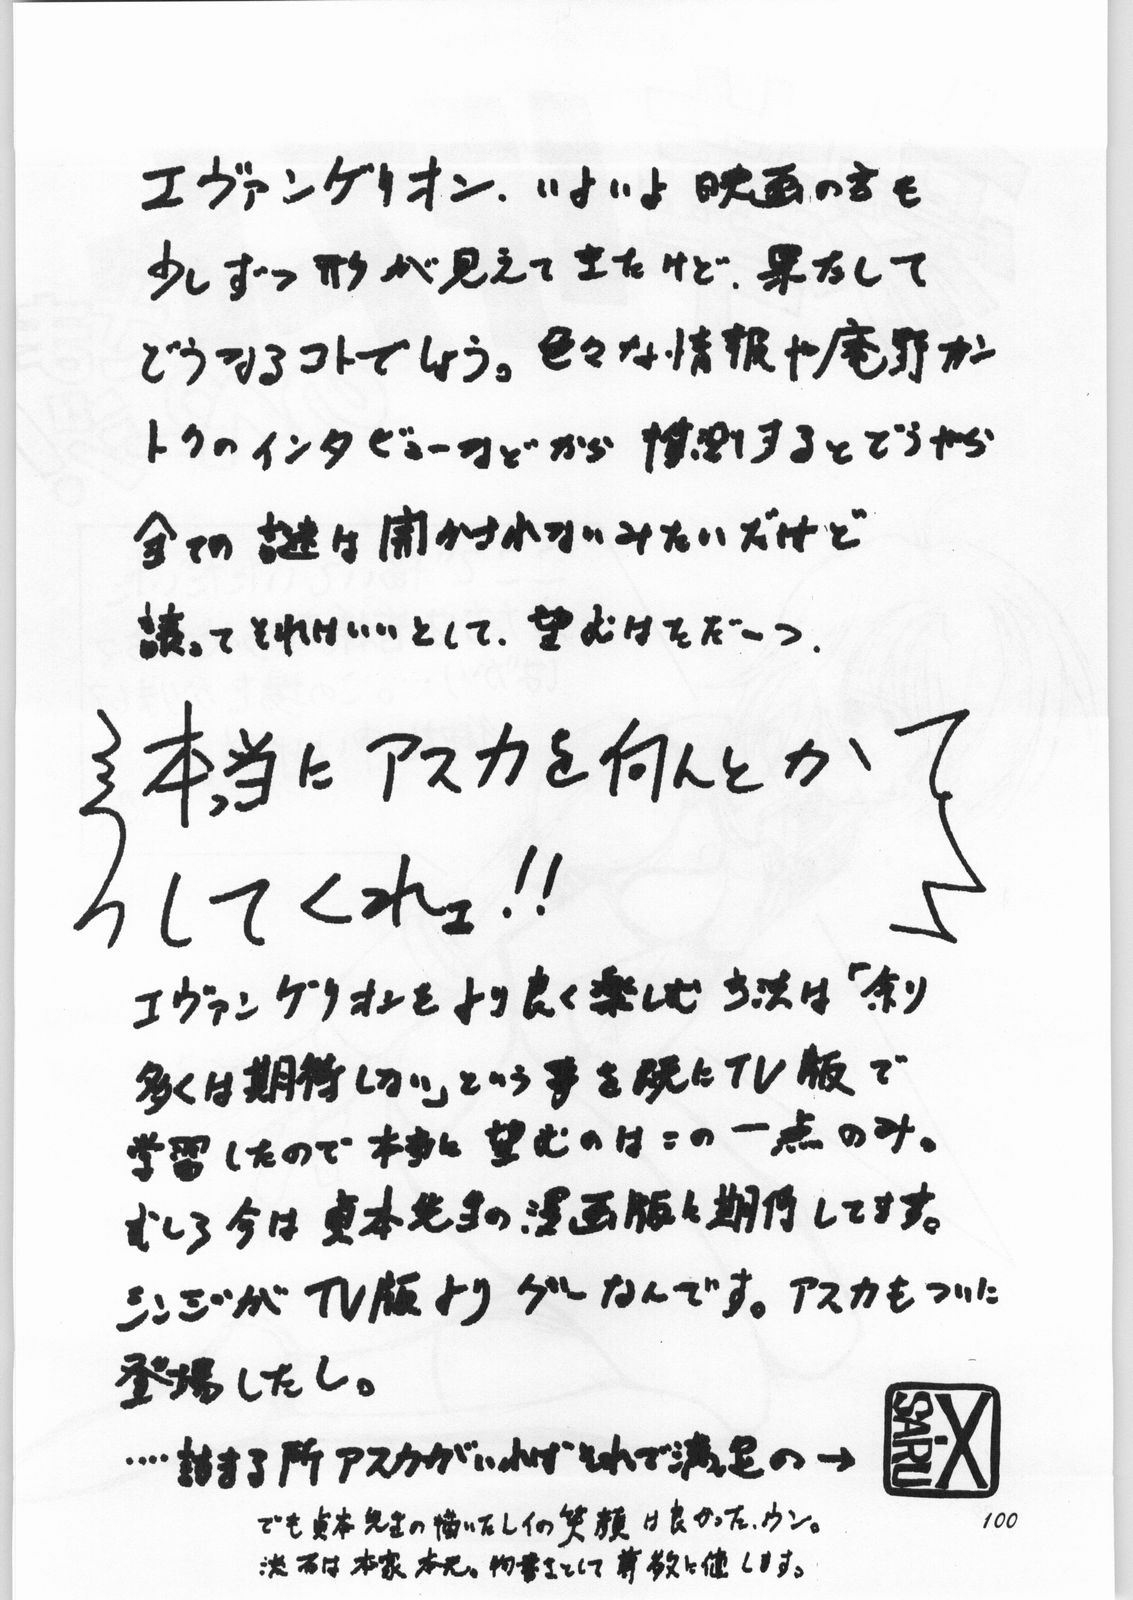 エヴァンゲリオン、いよいよ映画の方も
少しずつ形が見えてきたけど、果たして
どうなるコトでしょう。色々な情報や庵野カン
トクのインタビューなどから推測するとどうやら
全ての謎は開かされないみたいだけど
譲ってそれはいいとして、望むはただ一つ、
本当にアスカを何んとか
してくれェ!!
エヴァンゲリオンをより良く楽しむ方法は「余り
多くは期待しない」という事を既にTV版で
学習したので本当に望むのはこの一点のみ。
むしろ今は貞本先生の漫画版に期待してます。
シンジがTV版よりグーなんです。アスカもついに
登場したし。
‥‥詰まる所アスカがいればそれで満足の→
X・SARU
でも貞本先生の描いたレイの笑顔は良かった、ウン。
流石は本家本元。物書きとして尊敬に値します。
100